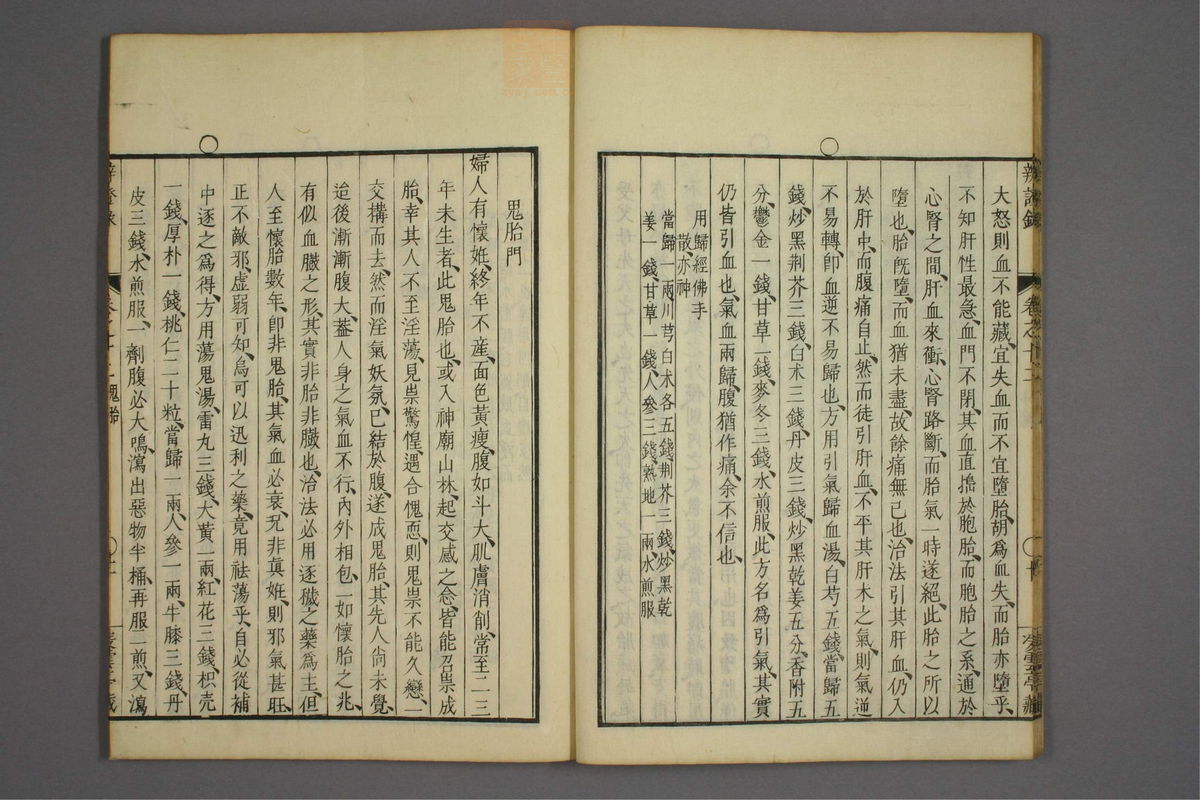 辨證錄
卷之十二
十
大怒則血不能藏宜失血而不宜墮胎胡為血失而胎亦墮乎
不知肝性最急血門不閉其血直搗於胞胎而胞胎之系通於
心腎之間肝血來衝心腎路斷而胎氣一時遂絕此胎之所以
墮也胎既墮而血猶未盡故餘痛無已也治法引其肝血仍入
於肝中而腹痛自止然而徒引肝血不平其肝木之氣則氣逆
不易轉卽血逆不易歸也方用引氣歸血湯白芍五錢當歸五
錢炒黑荆芥三錢白朮三錢丹皮三錢炒黑乾姜五分香附五
分鬱金一錢甘草一錢麥冬三錢水煎服此方名爲引氣其實
仍皆引血也氣血兩歸腹猶作痛余不信也
用歸經佛手
散亦神
當歸一兩川芎白朮各五錢荆芥三錢炒黑乾
姜一錢甘草一錢人參三錢熟地一兩水煎服
鬼胎門
婦人有懷姙終年不産面色黃瘦腹如斗大肌膚消削常至二三
年未生者此鬼胎也或入神廟山林起交感之念皆能召祟成
胎幸其人不至淫蕩見祟驚惶遇合愧恧則鬼祟不能久戀一
交搆而去然而淫氣妖氛已結於腹遂成鬼胎其先人尙未覺
迨後漸漸腹大蓋人身之氣血不行內外相包一如懷胎之兆
有似血臌之形其實非胎非臌也治法必用逐穢之藥爲主但
人至懷胎數年卽非鬼胎其氣血必衰况非眞姙則邪氣甚旺
正不敵邪虛弱可知烏可以迅利之藥竟用祛蕩乎自必從補
中逐之爲得方用蕩鬼湯雷丸三錢大黃一兩紅花三錢枳壳
一錢厚朴一錢桃仁二十粒當歸一兩人參一兩牛膝三錢丹
皮三錢水煎服一劑腹必大鳴瀉出惡物半桶再服二煎又瀉